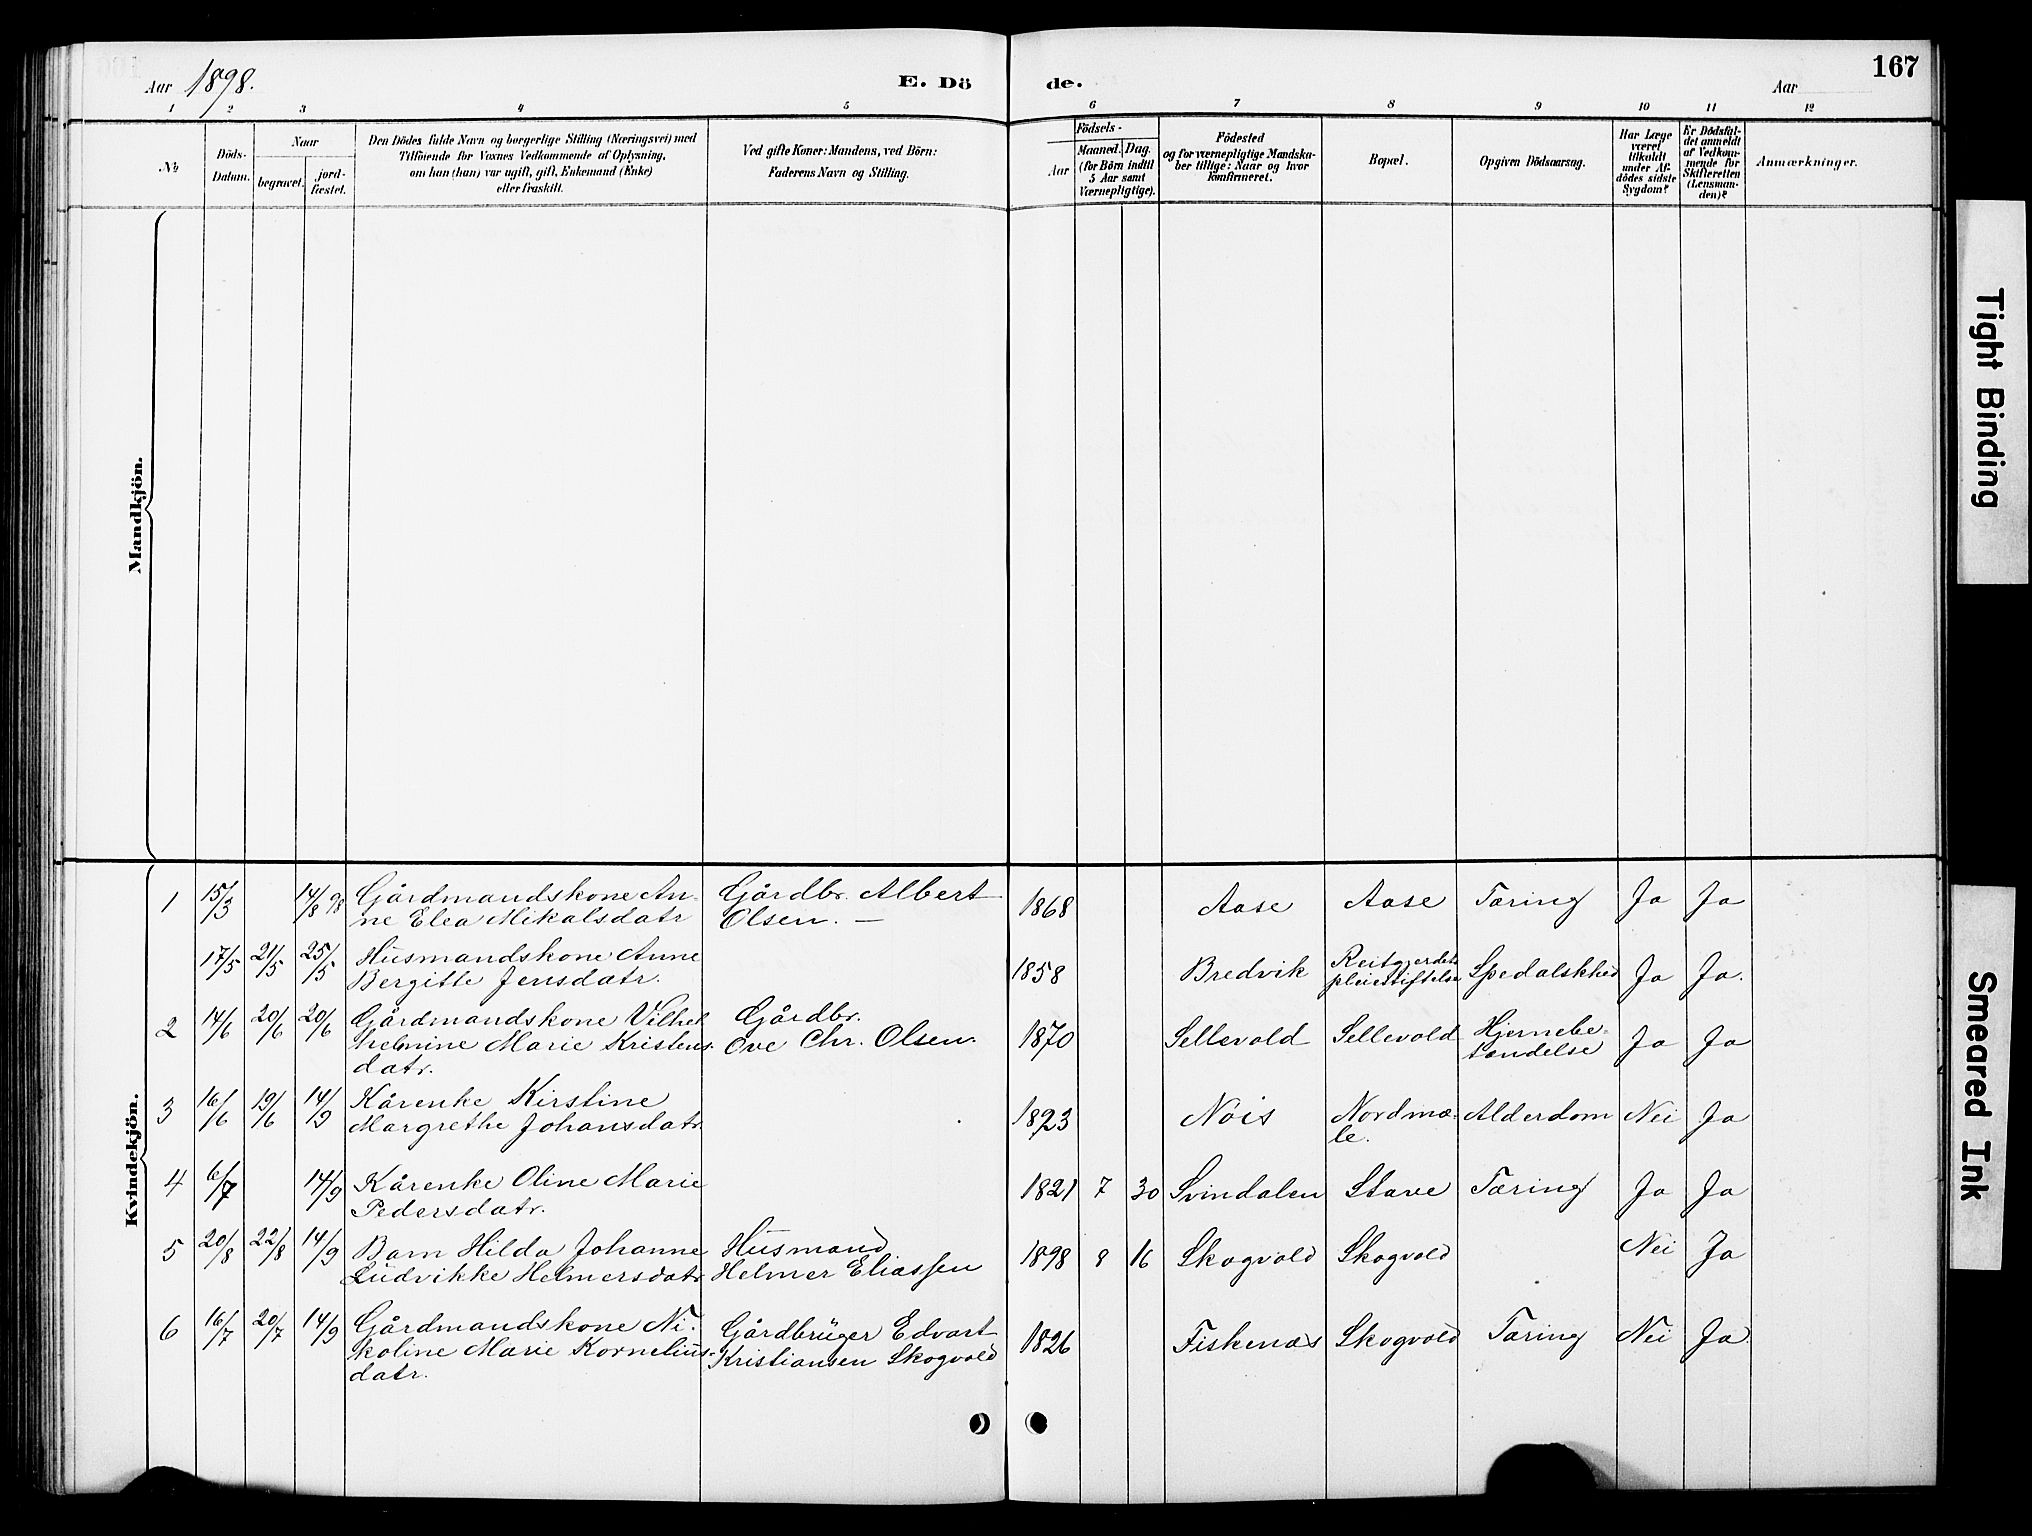 Aar 1898.
E. Dö de.
Aar
167
1 2 3 4 5 6 7 8 9 10 11 12
No
Döds-
Datum.
Naar
begravet.
jord-
fæstet.
Den Dödes fulde Navn og borgerlige Stilling (Næringsvei) med
Tilföiende for Voxnes Vedkommende af Oplysning,
om hun (han) var ugift, gift, Enkemand (Enke)
eller fraskilt.
Ved gifte Koner: Mandens, ved Börn:
Faderens Navn og Stilling.
Födsels-
Aar
Maaned. Dag.
(for Börn indtil
5 Aar samt
Værnepligtige).
Födested
og for værnepligtige Mandska-
ber tillige: Naar og hvor
konfirmeret.
Bopæl.
Opgiven Dödsaarsag.
Har Læge
været
tilkaldt
under Af-
dödes sidste
Sygdom?
Er Dödsfal-
det anmeldt
af Vedkom-
mende for
Skifteretten
(Lensman-
den)?
Anmærkninger.
Mandkjön.
Kvindekjön.
1 15/3 14/8 98 Gårdmandskone An-
ne Elea Mikalsdatr
Gårdbr. Albert
Olsen. —
1868 Aase Aase Tæring Ja Ja
17/5 21/5 25/5 Husmandskone Anne
Bergitte Jensdatr.
1858 Bredvik Reitgjerdets
pleiestiftelse Spedalskhed Ja Ja.
2 14/6 20/6 20/6 Gårdmandskone Vilhel
helmine Marie Kristens-
datr.
Gårdbr.
Ove Chr. Olsen.
1870 Sellevold Sellevold Hjernebe-
tændelse Ja Ja
3 16/6 19/6 14/9 Kårenke Kirstine
Margrethe Johansdatr
1823 Nöis Nordmæ-
le. Alderdom Nei Ja
4 6/7 14/9 Kårenke Oline Marie
Pedersdatr.
1821 7 30 Svindalen Stave Tæring Ja Ja
5 20/8 22/8 14/9 Barn Hilda Johanne
Ludvikke Helmersdatr
Husmand
Helmer Eliassen
1898 8 16 Skogvold Skogvold Nei Ja
6 16/7 20/7 14/9 Gårdmandskone Ni-
koline Marie Kornelius-
datr.
Gårdbrüger Edvart
Kristiansen Skogvold
1826 Fiskenæs Skogvold Tæring Nei Ja
Tight Binding
Smeared Ink